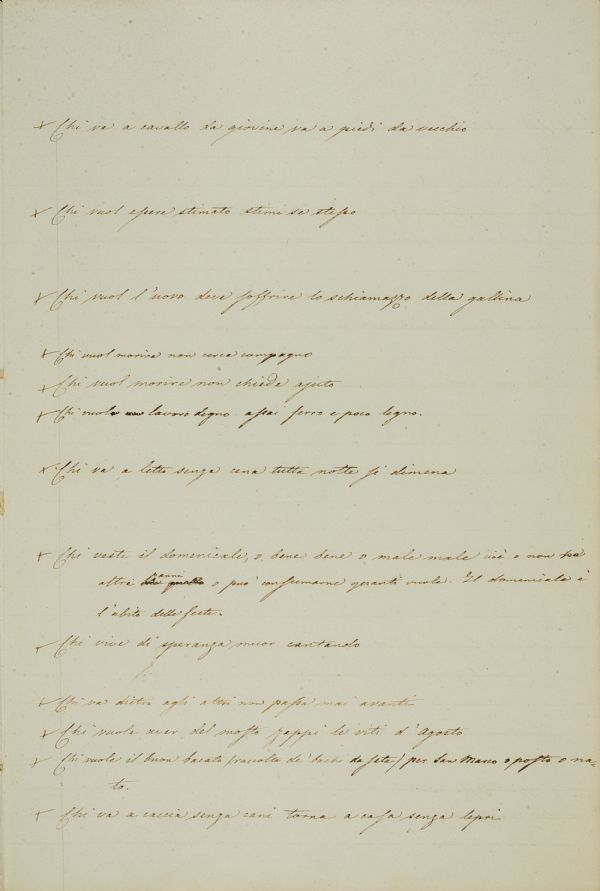 Chi va a cavallo da giovine va a piedi da vecchio
Chi vuol essere stimato stimi se stesso
Chi vuol l'uovo deve soffrire lo schiamazzo della gallina
Chi vuol morire non cerca compagno
Chi vuol morire non chiede ajuto
Chi vuole un lavoro degno assai ferro e poco legno.
Chi va a letto senza cena tutta notte si dimena
Chi veste il domenicale, o bene bene o male male cioè o non ha
altri panni o può consumarne quanti vuole. Il domenicale è
l'abito delle feste.
Chi vive di speranza muor cantando
Chi va dietro agli altri non passa mai avanti
Chi vuole aver del mosto zappi le viti d'Agosto
Chi vuole il buon bacato (raccolta de' bachi da seta) per San Marco o posto o na=
to.
Chi va a caccia senza cani torna a casa senza lepri